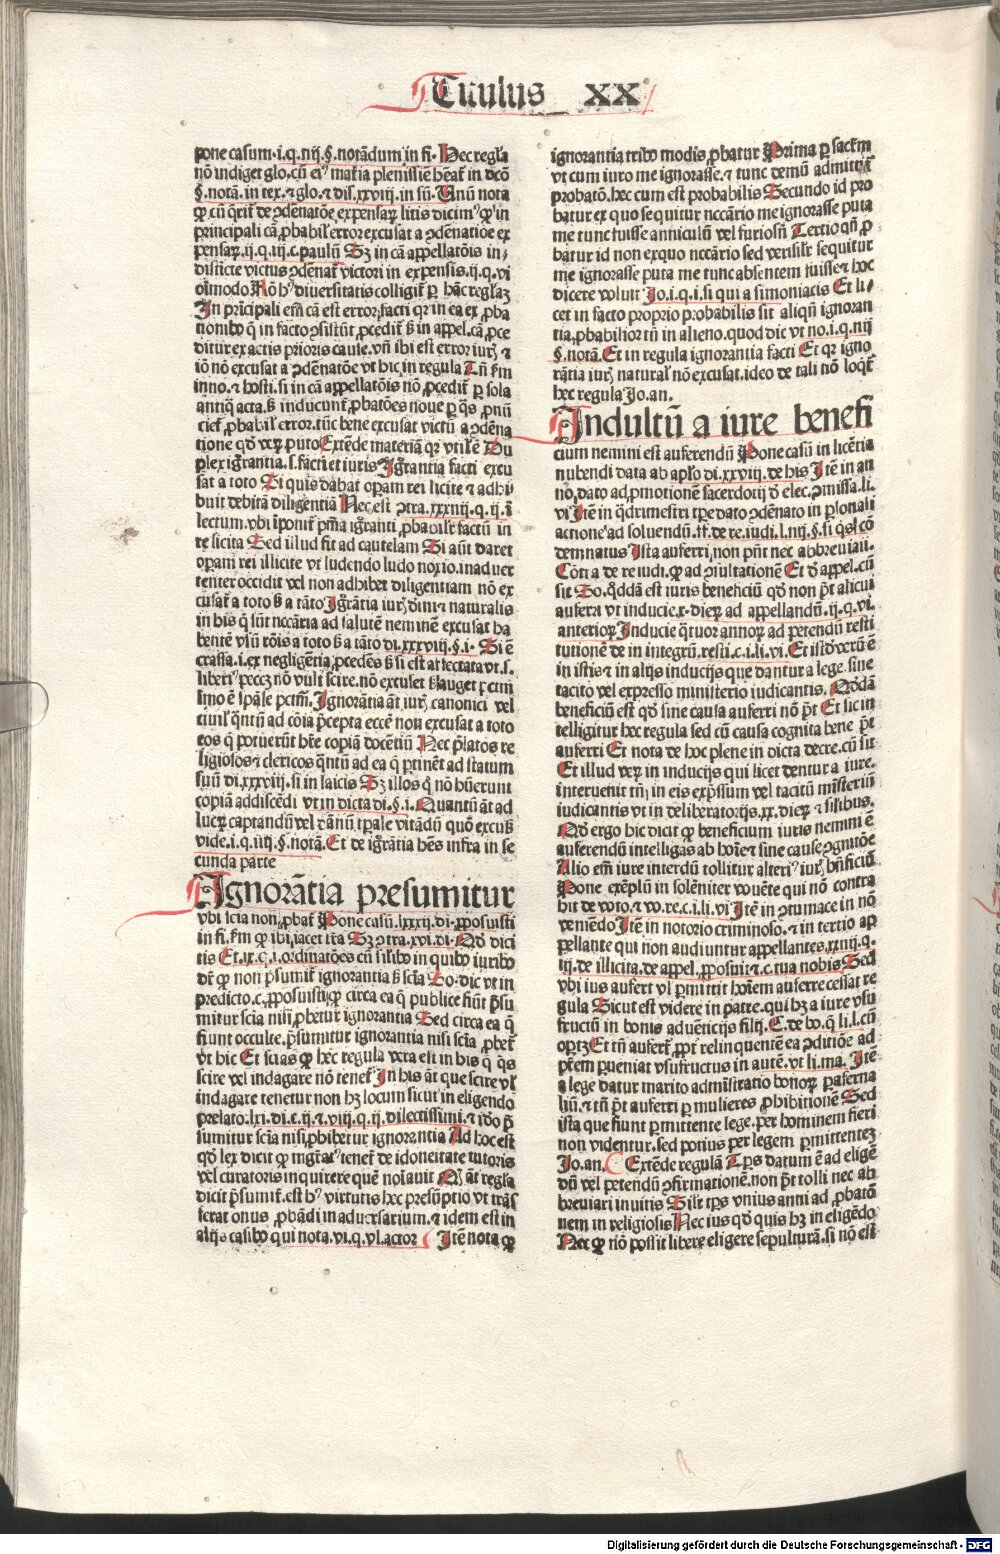 Titulus XX
pone casum.i.q.iiij.§.notādum in fi. Hec regl'a
nō indiget glo.cū ei⁹ mat'ia plenissime hēat' in dcō
§.notā.in tex.⁊ glo.⁊ dis.xxviij.in sū. Unū nota
ꝙ cū q̄rit' de ↄdēnatōe expensaꝝ litis dicim⁹ ꝙ in
principali cā ꝓbabil' error excusat a ↄdēnatiōe ex
pensaꝝ.ij.q.iij.c.paulū Sꝫ in cā appellatōis in/
disticte victus ↄdēnat' victori in expensis.ij.q.vi
oīmodo Rō h⁹ diuersitatis colligit' ꝑ hāc regl'aꝫ
In prīcipali em̄ cā est error facti qr in ea ex ꝓba
tionibꝰ q̄ in facto ↄsistūt ꝓcedit' ſꝫ in appel.cā ꝓce
ditur ex actis prioris cause.vn̄ ibi est error iur' ⁊
iō nō excusat a ↄdēnatōe vt hic in regula Tn̄ ẜm
inno.⁊ hosti.si in cā appellatōis nō ꝓcedit' ꝑ sola
antiq̄ acta.ſꝫ inducunt' ꝓbatōes noue ꝑ q̄s ꝓnū
ciet' ꝓbabil' error.tūc bene excusat victū a ↄdēna
tione qd' veꝝ puto Extēde materiā qr vtil' ē Du
plex igrantia.s.facti et iuris Igrantia facti excu
sat a toto Si quis dabat opam rei licite ⁊ adhi
buit debitā diligentiā Nec est ↄtra.xxxiiij.q.ij.ī
lectum.vbi īponit' pnīa igranti ꝓbabilr' factū in
re licita Sed illud fit ad cautelam Si aūt daret
opam rei illicite vt ludendo ludo noxio.inaduer
tenter occidit vel non adhibet diligentiam nō ex
cusat' a toto ſꝫ a tāto Igrātia iur' diuīi ⁊ naturalis
in his q̄ sūt nccāria ad salutē neminē excusat ha
bentē vsū rōis a toto ſꝫ a tāto di.xxxviij.§.i. Si ē
crassa.i.ex negligētia ꝓcedēs ſꝫ si est affectata vt.s.
liberi⁹ peccꝫ nō vult scire.nō excusat ſꝫ auget pctm̄
Imo ē spāle pctm̄. Ignorātia aūt iur' canonici vel
ciuil' q̄ntū ad cōia pcepta eccē non excusat a toto
eos q̄ potuerūt hr̄e copiā docētiū Nec platos re
ligiosos ⁊ clericos q̄ntū ad ea q̄ ptinēt ad statum
suū di.xxxviij.si in laicis Sꝫ illos q̄ nō hūerunt
copiā addiscēdi vt in dicta di.§.i. Quantū āt ad
lucꝝ captandū vel dānū tpale vitādū quō excuset
vide.i.q.iiij.§.notā. Et de igrātia hēs infra in se
cunda parte
Ignorātia presumitur
vbi scia non ꝓbat' Pone casū.lxxxij.di.ꝓposuisti
in fi.ẜm ꝙ ibi iacet lr̄a Sꝫ ↄtra.xvi.di. Qd' dici
tis Et.ix.q.i.ordinatōes cū silibꝰ in quibꝰ iuribꝰ
dr̄ ꝙ non psumit' ignorantia ſꝫ scia So.dic vt in
predicto.c.ꝓposuisti ꝙ circa ea q̄ publice fiūt psu
mitur scia nisi ꝓbetur ignorantia Sed circa ea q̄
fiunt occulte.psumitur ignorantia nisi scia ꝓbet'
vt hic Et scias ꝙ hec regula vera est in his q̄ q̄s
scire vel indagare nō tenet' In his āt que scire vl'
indagare tenetur non hꝫ locum sicut in eligendo
prelato.lxi.di.c.ij.⁊.viij.q.ij.dilectissimi.⁊ idō p
sumitur scia nisi ꝓbibetur ignorantia Ad hoc est
qd' lex dicit ꝙ mgrat⁹ tenet' de idoneitate tutoris
vel curatoris inquirere quē nolauit Qd' āt regl'a
dicit psumit'.est h⁹ virtutis hec presūptio vt trās
ferat onus ꝓbādi in aduersarium.⁊ idem est in
alijs casibꝰ qui nota.vi.q.vl.actor Itē nota ꝙ
ignorantia tribꝰ modis ꝓbatur Prima p sacr̄m
vt cum iuro me ignorasse.⁊ tunc demū admittit'
probatō.hec cum est probabilis Secundo id pro
batur ex quo sequitur nccārio me ignorasse puta
me tunc fuisse anniculū vel furiosū Tertio qn̄ p
batur id non ex quo nccārio sed verisilr' sequitur
me ignorasse puta me tunc absentem fuisse ⁊ hoc
dicere voluit Jo.i.q.i.si qui a simoniacis Et li/
cet in facto proprio probabilis sit aliqū ignoran
tia.ꝓbabilior tn̄ in alieno.quod dic vt no.i.q.iiij
§.notā. Et in regula ignorantia facti Et qr igno
rātia iur' natural' nō excusat.ideo de tali nō loqt'
hec regula Jo.an.
Indultū a iure benefi
cium nemini est auferendū Pone casū in licētia
nubendi data ab aplo di.xxviij.de his Itē in an
no dato ad ꝓmotionē sacerdotij d' elec.ↄmissa.li.
vi Itē in q̄drumestri tpe dato ↄdēnato in psonali
actione ad soluendū.ff.de re.iudi.l.iiij.§.si q̄s cō
demnatus Ista auferri.non pn̄t nec abbreuiari.
Cōtra de re iudi.ꝙ ad ↄsultationē Et d' appel.cū
sit So.q̄dda est iuris beneficiū qd' non pt alicui
auferri vt inducie.x.dieꝝ ad appellandū.ij.q.vi.
anterioꝝ Inducie q̄tuor annoꝝ ad petendū resti
tutionē de in integrū.resti.c.i.li.vi. Et istd' veꝝ ē
in istis ⁊ in alijs inducijs que dantur a lege sine
tacito vel expresso ministerio iudicantis. Qd'dā
beneficiū est qd' sine causa auferri nō pt Et sic in
telligitur hec regula sed cū causa cognita bene pt
auferri Et nota de hoc plene in dicta decre.cū sit
Et illud veꝝ in inducijs qui licet dentur a iure.
interuenit tn̄ in eis expssum vel tacitū mīsteriū
iudicantis vt in deliberatorijs.xx.dieꝝ ⁊ silibus.
Qd' ergo hic dicit ꝙ beneficium iuris nemini ē
auferendū intelligas ab hoīe ⁊ sine cause ↄgnitōe
Alio em̄ iure interdū tollitur alteri⁹ iur' bn̄ficiū
Pone exēplū in solēniter vouēte qui nō contra
hit de voto.⁊ vo.re.c.i.li.vi Itē in ↄtumace in nō
veniēdo Itē in notorio criminoso.⁊ in tertio ap
pellante qui non audiuntur appellantes.xxiiij.q.
iij.de illicita.de appel.ꝓposuit ⁊.c.tua nobis Sed
vbi ius aufert vl' pmittit hoīem auferre cessat re
gula Sicut est videre in patre.qui hꝫ a iure vsu
fructū in bonis aduēticijs filij. C.de bo.q̄ li.l.cū
optꝫ Et tn̄ aufert' ꝓpt' relinquentē ea ↄditiōe ad
ptem pueniat vsufructus in autē.vt li.ma. Itē
a lege datur marito admīstratio bonoꝝ paferna
liū.⁊ tn̄ pt auferri p mulieres ꝓhibitionē Sed
ista que fiunt pmittente lege.per hominem fieri
non videntur.sed potius per legem pmittentez
Jo.an. Extēde regulā Tps datum ē ad eligē
dū vel petendū ↄfirmationē.non pt tolli nec ab
breuiari inuitis Silr' tps vnius anni ad ꝓbatō
nem in religiosis Nec ius qd' quis hꝫ in eligēdo
Nec ꝙ nō possit libere eligere sepulturā.si nō est
Digitalisierung gefördert durch die Deutsche Forschungsgemeinschaft - DFG